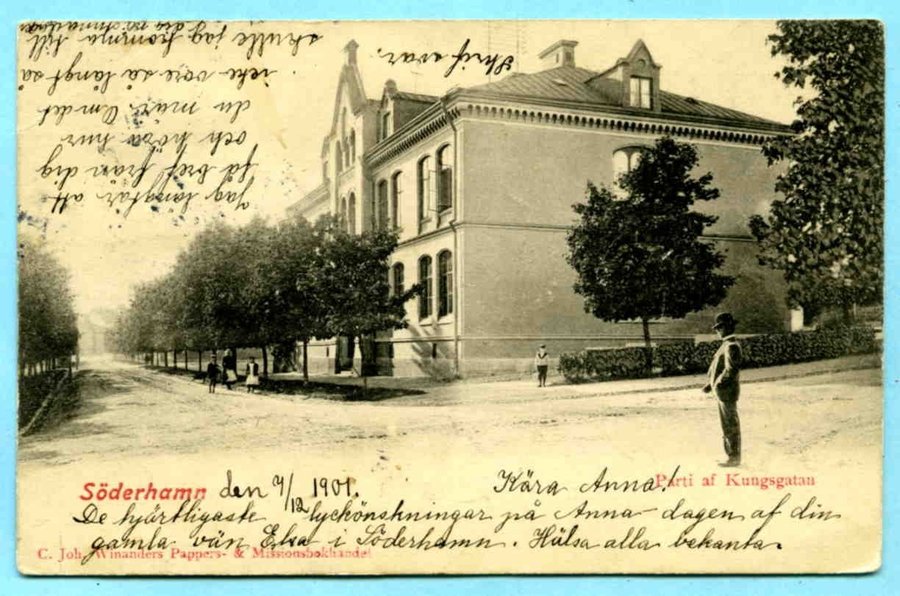 Söderhamn
den 9/12 1901.
Kära Anna!
Parti af Kungsgatan
De hjärtligaste lyckönskningar på Anna-dagen af din
gamla vän Elsa i Söderhamn. Hälsa alla bekanta.
C. Joh. Winanders Pappers- & Missionsbokhandel
Jag längtar att
få bref från dig
och höra hur
du mår. Om det
icke vore så långt så
skulle jag komma till
dig
Skrif svar.